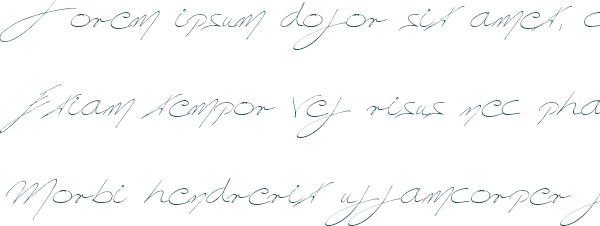 Lorem ipsum dolor sit amet, c
Etiam tempor vel risus nec pha
Morbi hendrerit ullamcorper